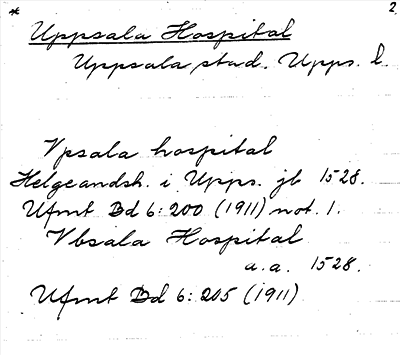 * Uppsala Hospital 2
Uppsala stad. Upps. l.
Vpsala hospital
Helgeandsh. i Upps. jb 1528.
Ufmt Bd 6:200 (1911) not. 1.
Vbsala Hospital
a.a. 1528.
Ufmt Bd 6:205 (1911)